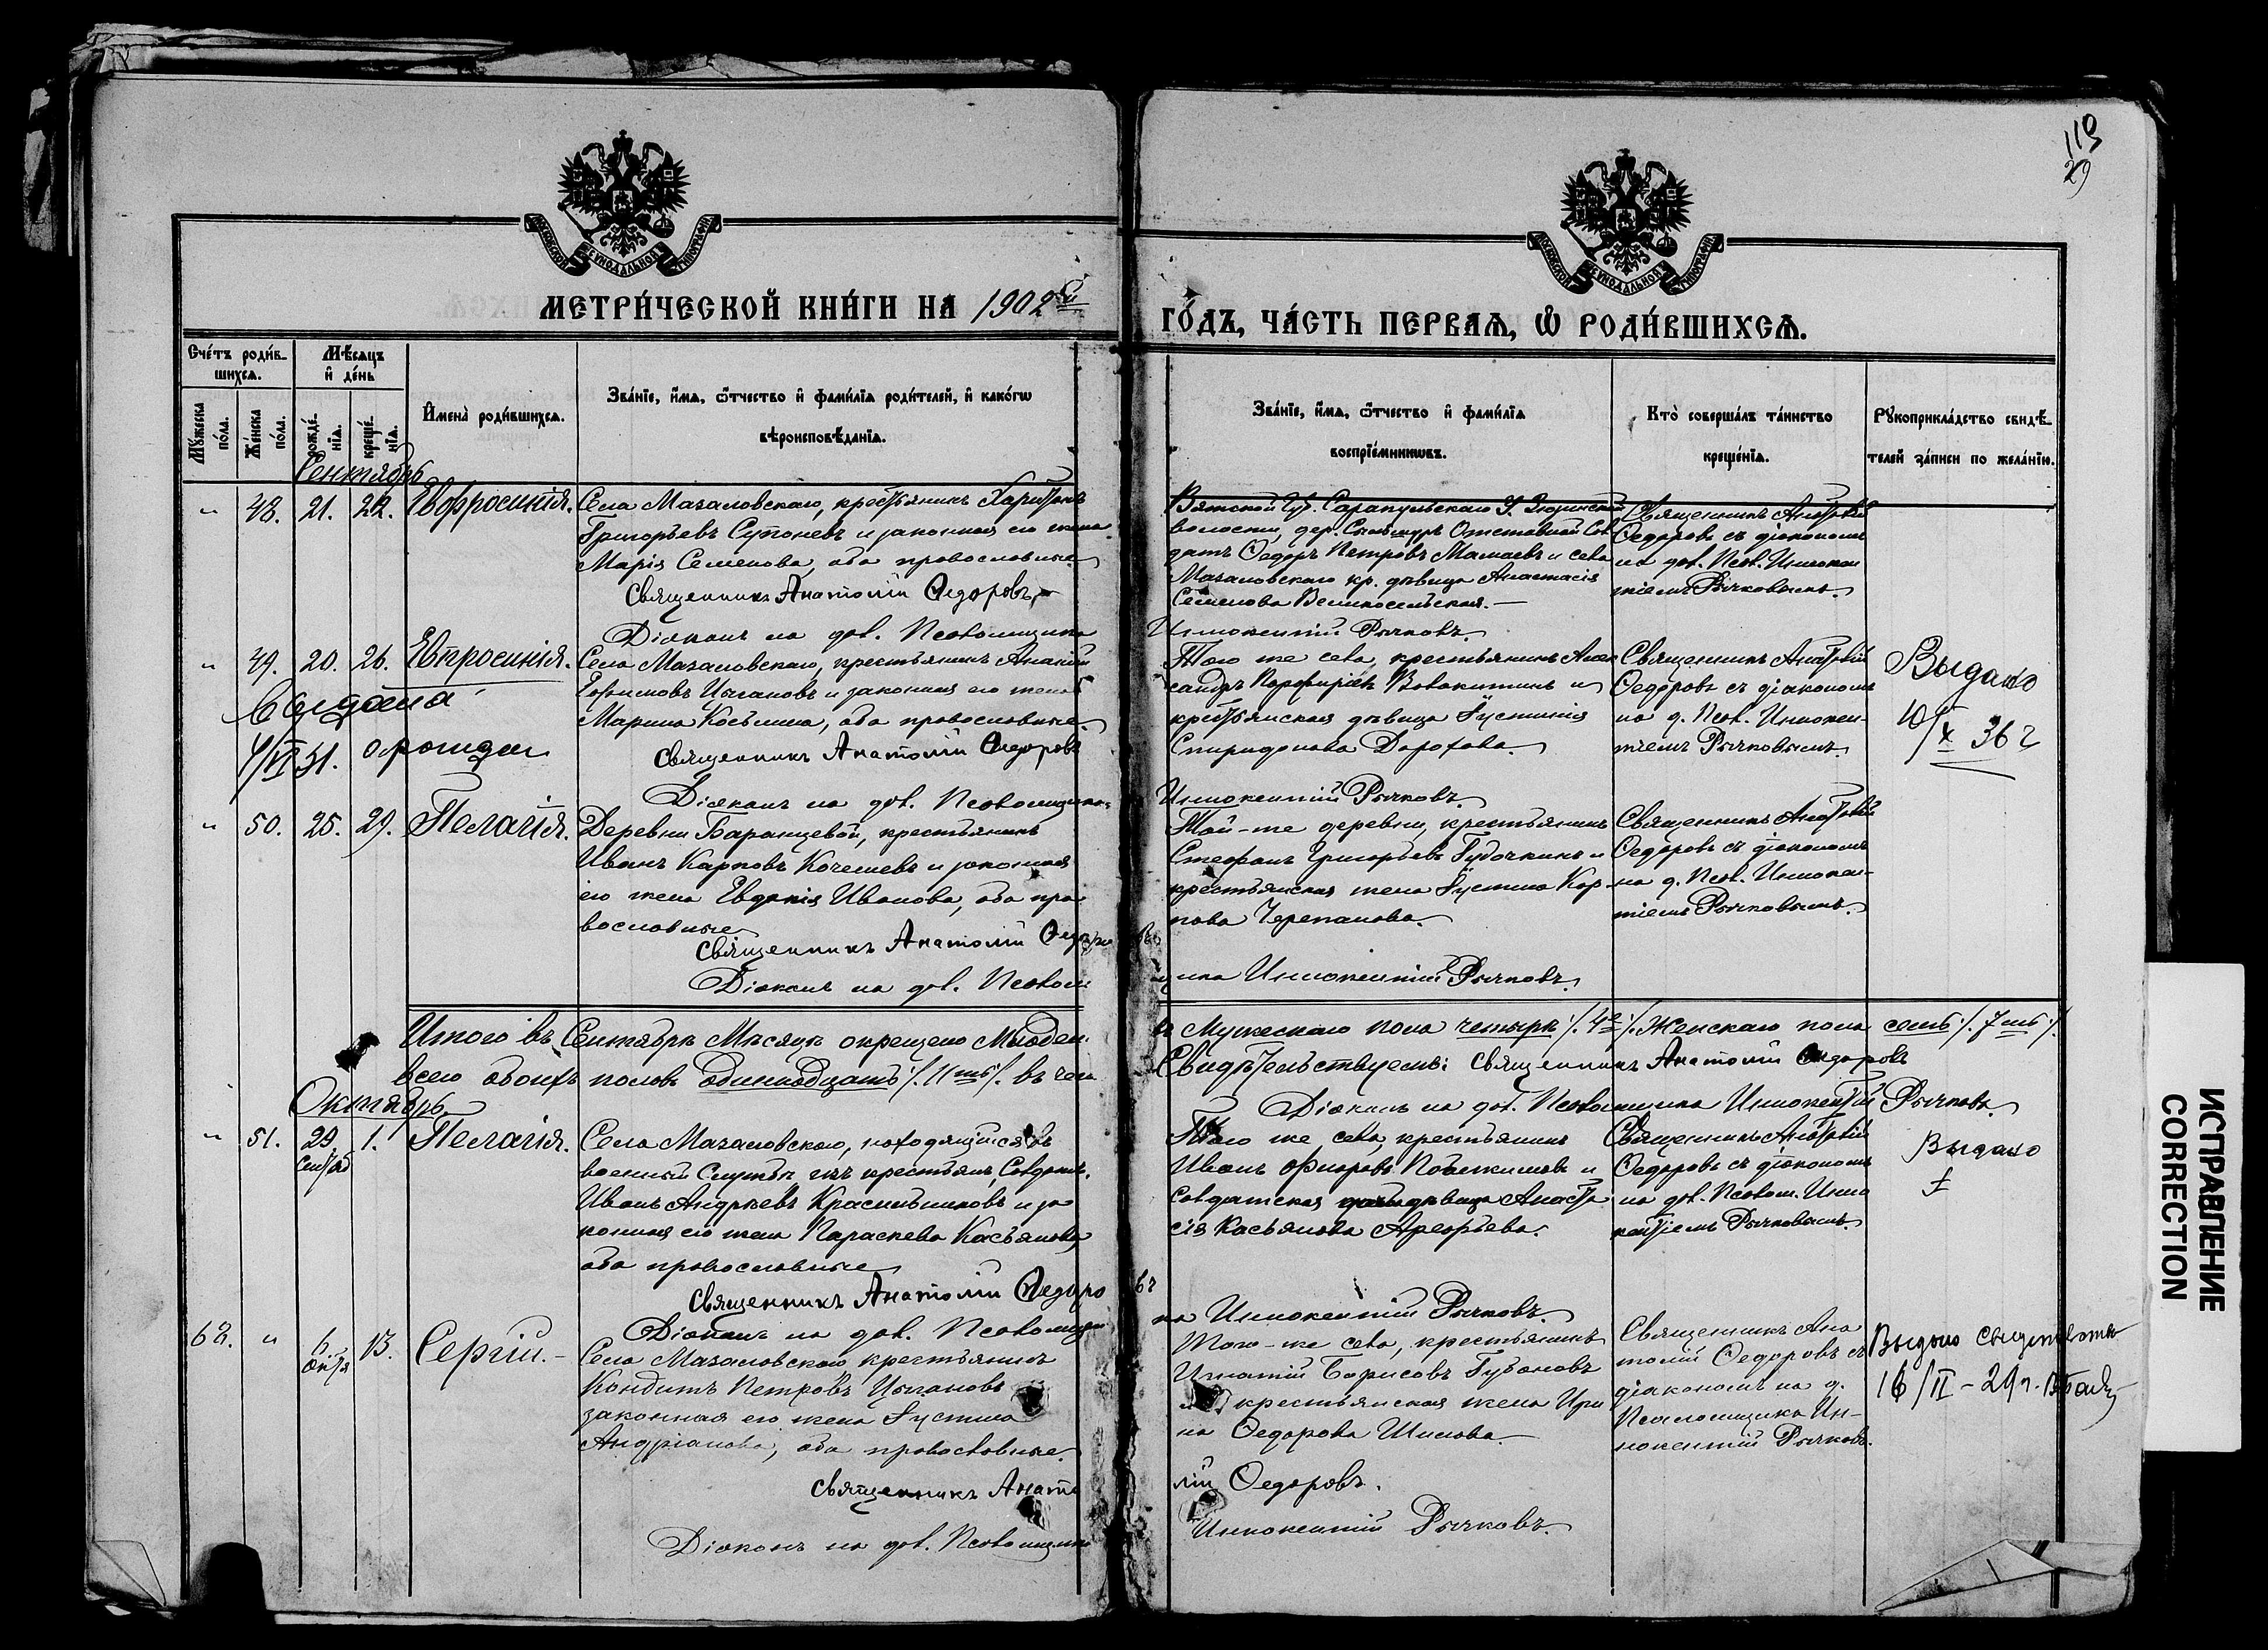 119
29
МОСКОВСКОЙ СѴНОДАЛЬНОЙ ТИПОГРАФІИ
МОСКОВСКОЙ СѴНОДАЛЬНОЙ ТИПОГРАФІИ
МЕТРИ́ЧЕСКОЙ КНИ́ГИ НА 1902й
ГО́ДЪ, ЧА́СТЬ ПЕ́РВАѦ, Ѡ҆ РОДИ́ВШИХСѦ.
Сче́тъ роди́в-
шихсѧ.
Мѣ́сѧцъ
и҆ де́нь
Мꙋ́жеска
по́ла.
Же́нска
по́ла.
рожде́-
нїѧ.
креще́-
нїѧ.
И҆мена̀ роди́вшихсѧ.
Зва́нїе, и҆́мѧ, ѻ҆́тчество и҆ фами́лїѧ роди́телей, и҆ како́гѡ
вѣроисповѣ́данїѧ.
Зва́нїе, и҆́мѧ, ѻ҆́тчество и҆ фами́лїѧ
воспрїе́мникѡвъ.
Кто̀ соверша́лъ та́инство
креще́нїѧ.
Рꙋкоприкла́дство свидѣ́-
телей за́писи по жела́нїю.
Сентябрь
" 48. 21. 22. Евфросинія.
Села Мазаловскаго, крестьянинъ Харитонъ
Григорьевъ Супоневъ и законная его жена
Марія Семенова, оба православные
Священникъ Анатолій Ѳедоровъ
Діаконъ на дол. Псаломщика
Вятской Губ. Сарапульскаго У.
волости, дер. Отставной Сол
датъ Ѳедоръ Петровъ Мамаевъ и села
Мазаловскаго кр. дѣвица Анастасія
Семенова Великосельская.
Иннокентій Рычковъ.
Священникъ Анатолій
Ѳедоровъ съ діакономъ
на дол. Псал. Иннокен
тіемъ Рычковымъ.
" 49. 20. 26. Евпросинія.
Выдана
о рожден
4/VI 31.
Села Мазаловскаго, крестьянинъ Ананій
Ефимовъ Цыгановъ и законная его жена
Марина Косьмина, оба православные
Священникъ Анатолій Ѳедоровъ
Діаконъ на дол. Псаломщика
Того же села, крестьянинъ Алек
сандръ Порфирьевъ Волокитинъ и
крестьянская дѣвица Іустинія
Спиридонова Дорохова.
Иннокентій Рычковъ.
Священникъ Анатолій
Ѳедоровъ съ діакономъ
на д. Псал. Иннокен-
тіемъ Рычковымъ.
Выдано
10/X 36 г
" 50. 25. 29. Пелагія.
Деревни Баранцевой, крестьянинъ
Иванъ Карповъ Кочешевъ и законная
его жена Евдокія Иванова, оба пра
вославные
Священникъ Анатолій Ѳедоро
Діаконъ на дол. Псалом
Той-же деревни, крестьянинъ
Стефанъ Григорьевъ Губочкинъ и
крестьянская жена Іустина Кар
пова Черепанова.
въ
щика Иннокентій Рычковъ.
Священникъ Анатолій
Ѳедоровъ съ діакономъ
на д. Псал. Иннокен-
тіемъ Рычковымъ.
Итого въ Сентябрѣ Мѣсяцѣ окрещено Младен-
всего обоихъ половъ одиннадцать /.11ть/. въ чемъ
Мужескаго пола четыре /.4е/. Женскаго пола семь /.7мь/.
Свидѣтельствуемъ: Священникъ Анатолій Ѳедоровъ
Діаконъ на дол. Псаломщика Иннокентій Рычковъ.
Октябрь
" 51. 29. 1. Пелагія.
Сентяб
Села Мазаловскаго, находящійся въ
военный Службы изъ крестьянъ, Солдатъ
Иванъ Андреевъ Красильниковъ и за
конная его жена Параскева Касьянова,
оба православные
Священникъ Анатолій Ѳедоро
Діаконъ на дол. Псаломщи
Того же села, крестьянинъ
Иванъ и
Солдатская дѣвица Анаста
сія Касьянова Арефьева.
въ
ка Иннокентій Рычковъ.
Священникъ Анатолій
Ѳедоровъ съ діакономъ
на дол. Псалом. Инно
кентіемъ Рычковымъ.
Выдано
68. " 6. 13. Сергій.
Октя
Села Мазаловскаго крестьянинъ
Кондитъ Петровъ Цыгановъ
законная его жена Іустина
Андріанова, оба православные.
Священникъ Анато
Діаконъ на дол. Псаломщика
Того-же села, крестьянинъ
Игнатій Борисовъ Губановъ
и крестьянская жена Ири
на Ѳедорова Шилова.
лій Ѳедоровъ.
Иннокентій Рычковъ.
Священникъ Ана
толій Ѳедоровъ съ
діакономъ на д.
Псаломщика Ин-
нокентій Рычковъ.
Выдано
16/II - 29 г.
ИСПРАВЛЕНИЕ
CORRECTION